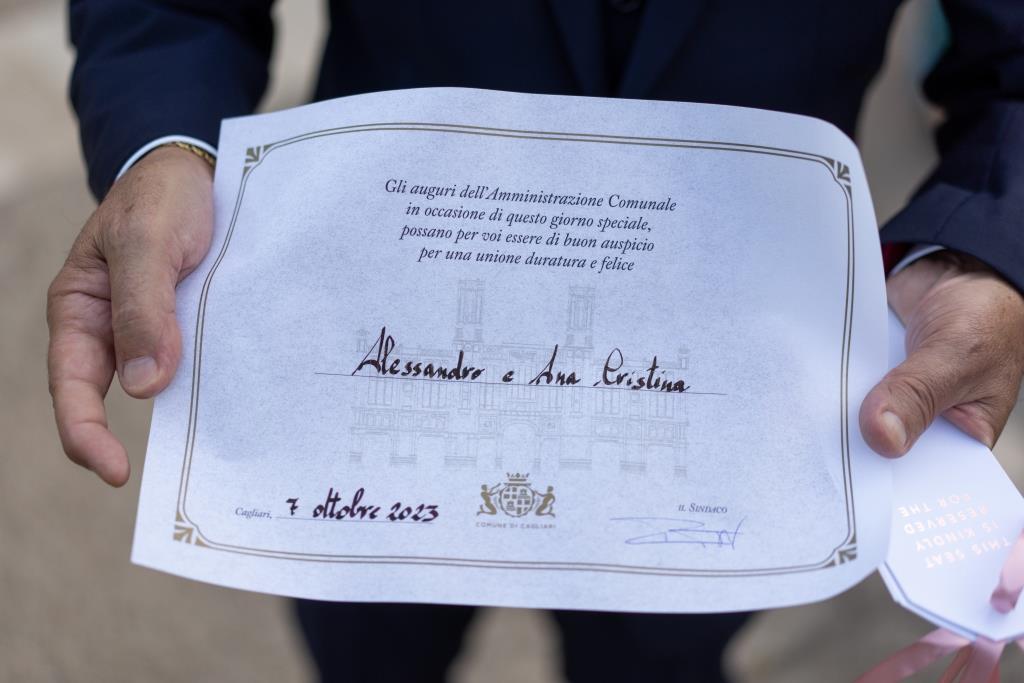 Gli auguri dell'Amministrazione Comunale
in occasione di questo giorno speciale,
possano per voi essere di buon auspicio
per una unione duratura e felice
Alessandro e Ana Cristina
Cagliari, 7 ottobre 2023
COMUNE DI CAGLIARI
IL SINDACO
THIS SEAT
IS KINDLY
RESERVED
FOR THE